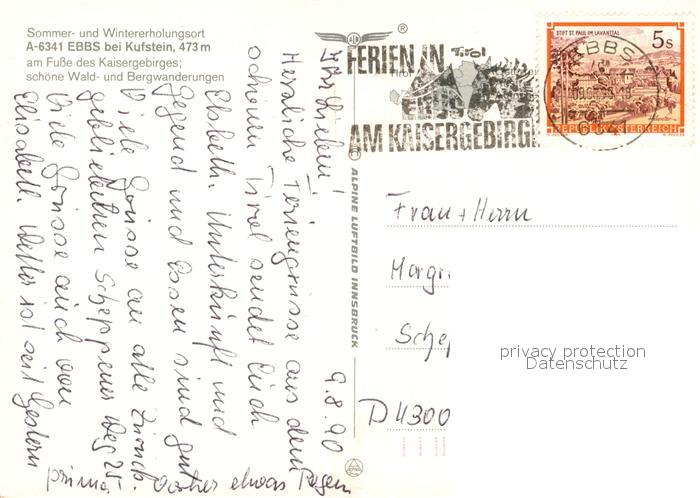 Sommer- und Wintererholungsort
A-6341 EBBS bei Kufstein, 473 m
am Fuße des Kaisergebirges;
schöne Wald- und Bergwanderungen
9.8.90
Ihr Lieben!
Herzliche Feriengrüsse aus dem
schönen Tirol sendet Euch
Elsbeth. Unterkunft und
Gegend und Essen sind gut
Viele Grüsse an alle Zurück-
gebliebenen Scheppener Weg 25.
Viele Grüsse auch von
Elisabeth. Wetter ist seit Gestern
prima. Vorher etwas Regen
ALPINE LUFTBILD INNSBRUCK
®
FERIEN IN Tirol
EBBS
AM KAISERGEBIRGE
STIFT ST. PAUL IM LAVANTTAL
5 S
REPUBLIK ÖSTERREICH
EBBS
Frau + Herrn
Margr
Schep
D 4300
privacy protection
Datenschutz